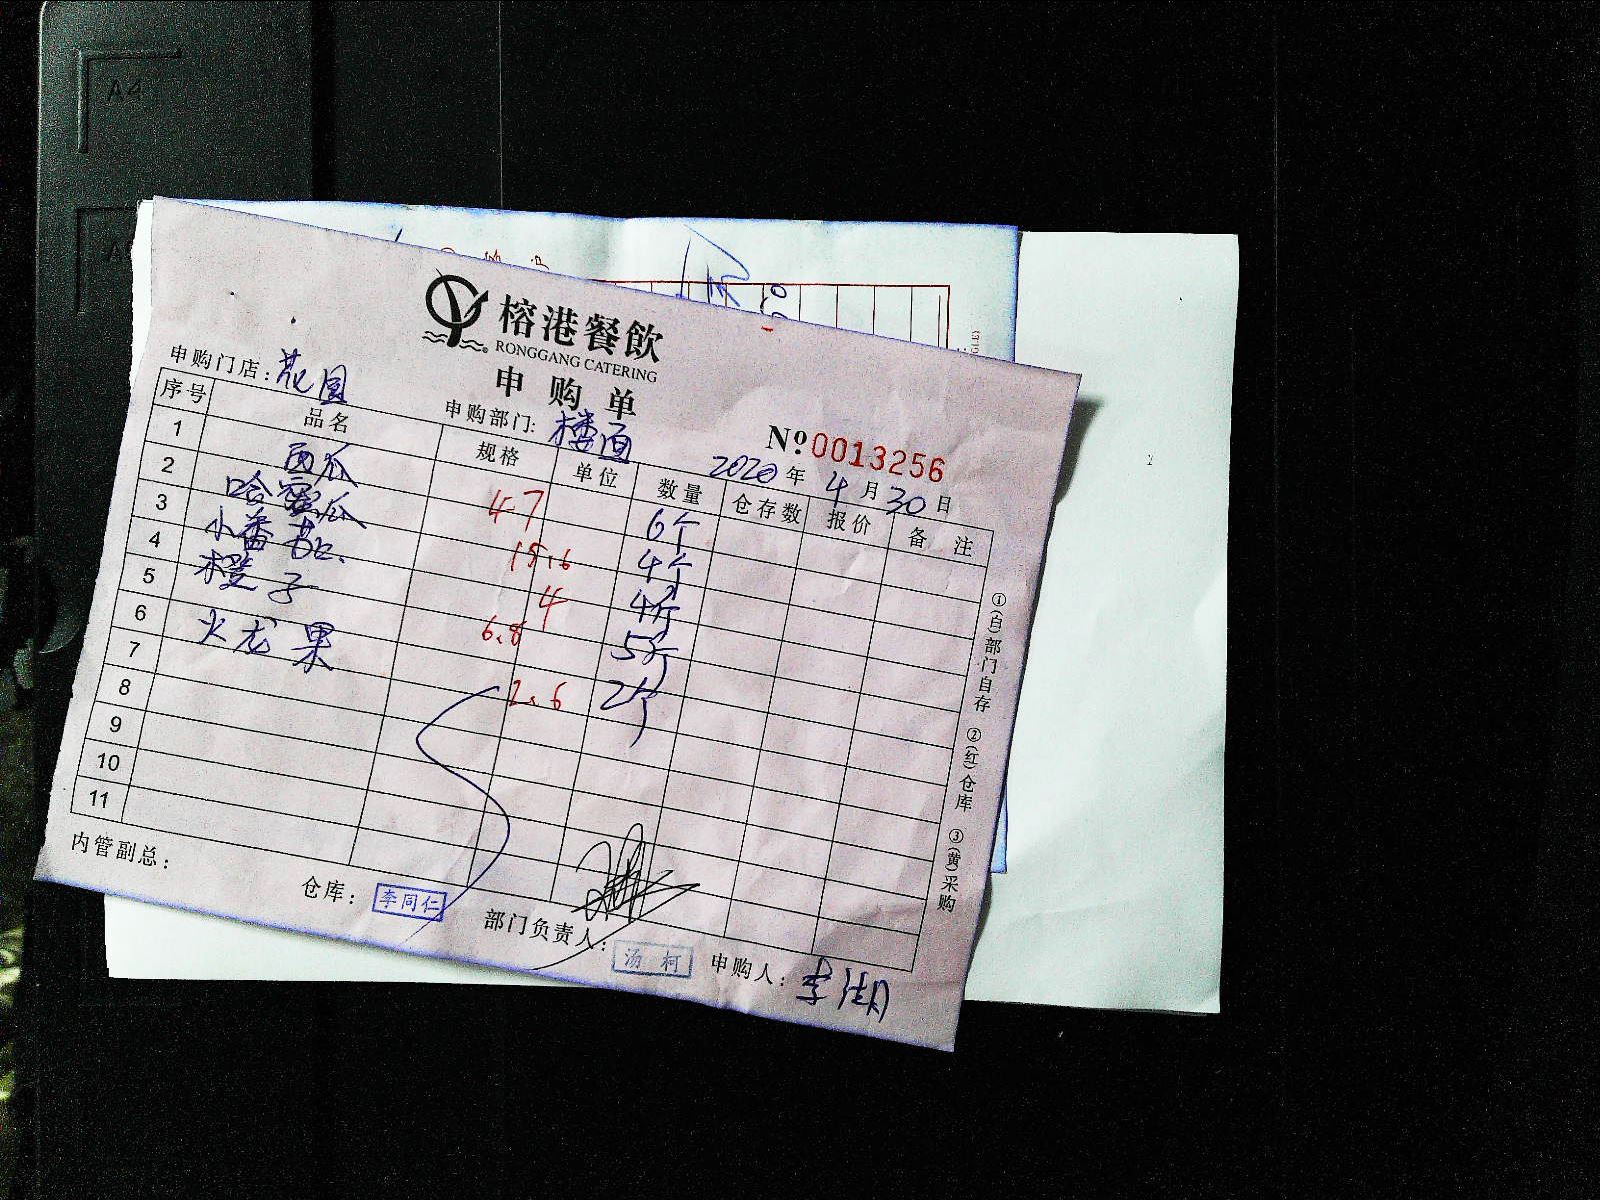 A4
榕港餐飲
RONGGANG CATERING
申购单
申购门店：花園
申购部门：楼面
Nº 0013256
2020年4月30日
序号 品名 规格 单位 数量 仓存数 报价 备注
1 西瓜 47 6个
2 哈密瓜 15.6 4个
3 小番茄 4 4斤
4 橙子 6.8 5斤
5 火龙果 2.6 2个
6
7
8
9
10
11
①(白)部门自存 ②(红)仓库 ③(黄)采购
内管副总：
仓库：李同仁
部门负责人：汤柯
申购人：